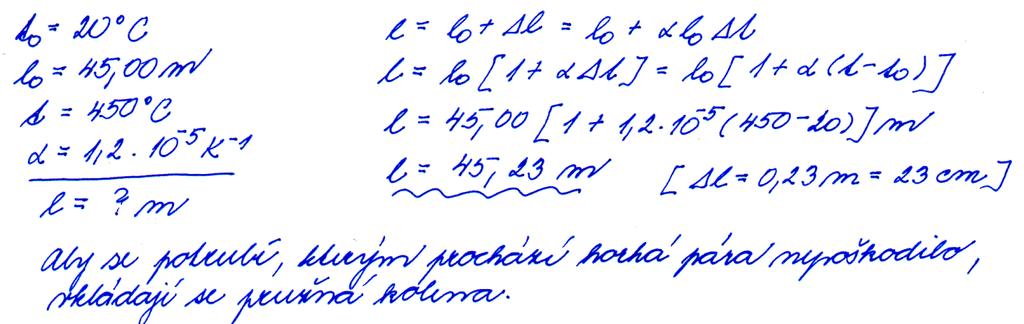 t₀ = 20°C
l₀ = 45,00 m
t = 450°C
α = 1,2 · 10⁻⁵ K⁻¹
l = ? m
l = l₀ + Δl = l₀ + α l₀ Δt
l = l₀ [1 + α Δt] = l₀ [1 + α (t - t₀)]
l = 45,00 [1 + 1,2 · 10⁻⁵ (450 - 20)] m
l = 45,23 m [Δl = 0,23 m = 23 cm]
Aby se potrubí, kterým prochází horká pára nepoškodilo,
vkládají se pružná kolena.